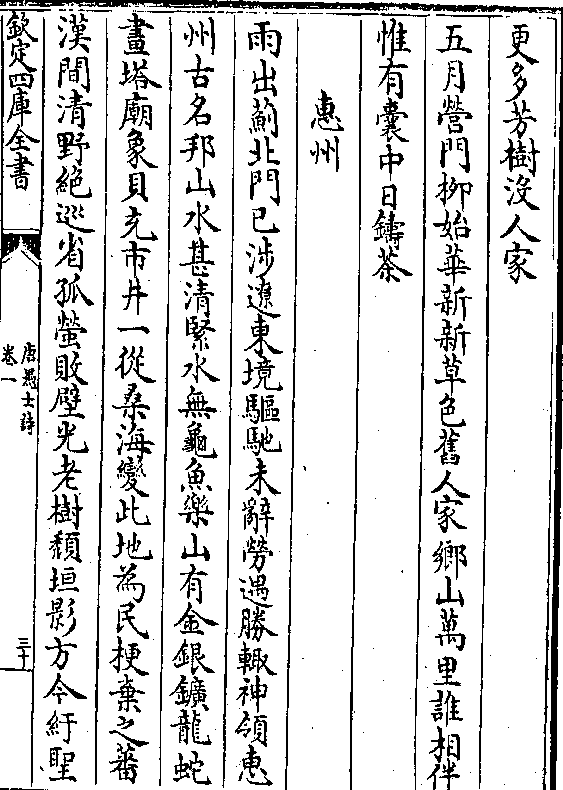 更多芳樹沒人家
五月營門栁始華新新草色舊人家鄉山萬里誰相伴
惟有囊中日鑄茶
惠州
雨出薊北門已涉遼東境驅馳未辭勞遇勝輙神領惠
州古名邦山水甚清緊水無龜魚樂山有金銀鑛龍蛇
畫塔廟象貝充市井一從桑海變此地為民梗棄之蕃
漢間清野絶巡省孤螢敗壁光老樹頽垣影方今紆聖
欽定四庫全書
唐愚士詩
卷一
三十